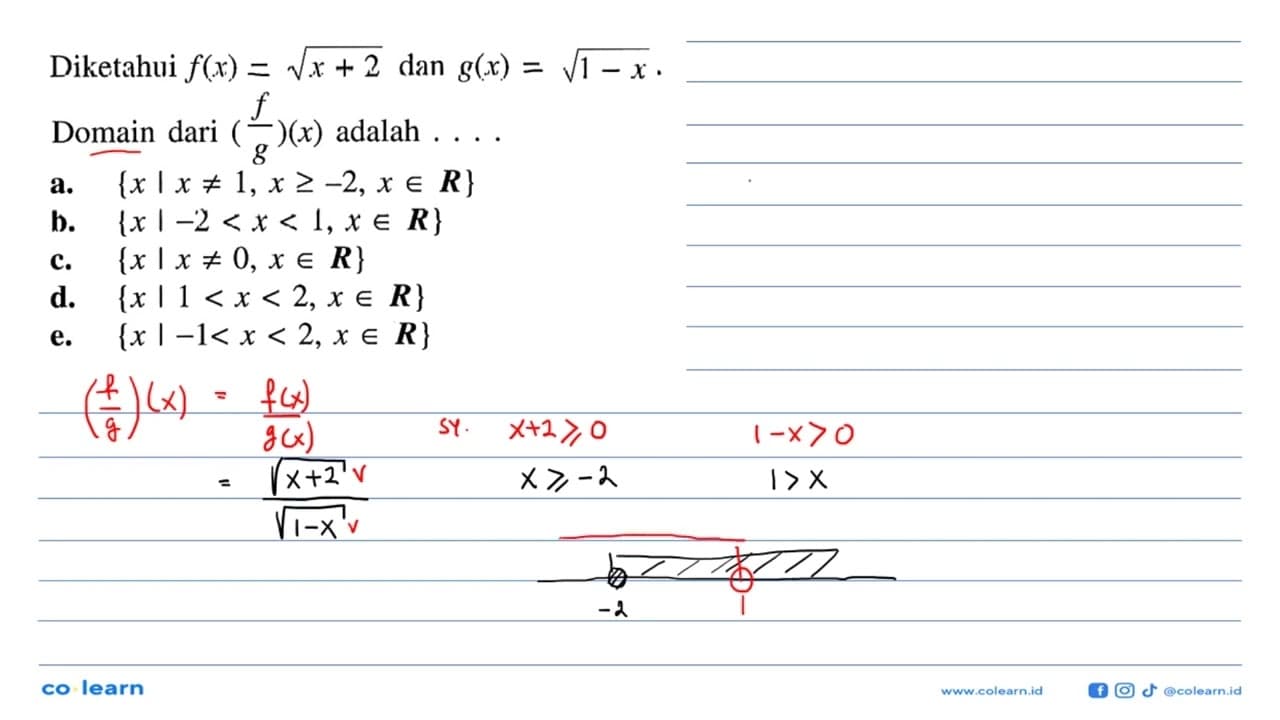 Diketahui f(x) = √x + 2 dan g(x) = √1 − x .
Domain dari (f/g)(x) adalah . . . .
a. {x | x ≠ 1, x ≥ −2, x ∈ R}
b. {x | −2 < x < 1, x ∈ R}
c. {x | x ≠ 0, x ∈ R}
d. {x | 1 < x < 2, x ∈ R}
e. {x | −1 < x < 2, x ∈ R}
(f/g)(x) = f(x)/g(x)
sy. x+2 ⩾ 0 1-x > 0
= √x+2 / √1-x
x ⩾ -2 1 > x
-2 1
co learn
www.colearn.id @colearn.id